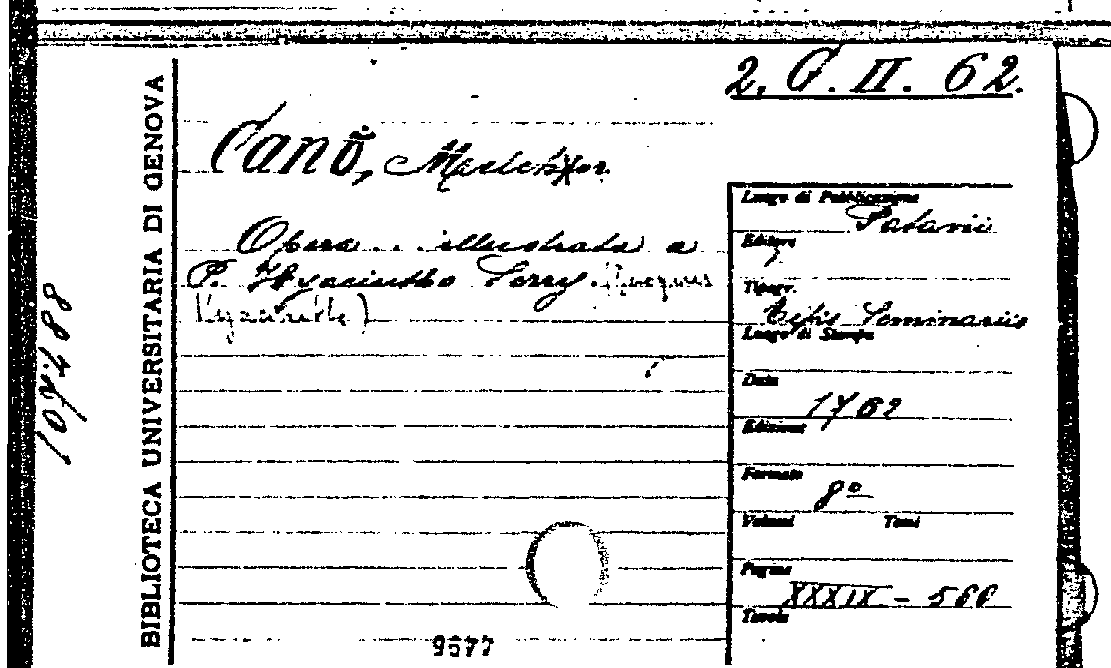 2. G. II. 62.
BIBLIOTECA UNIVERSITARIA DI GENOVA
107488
Cano, Melchior
Opera .. illustrata a
P. Hyacintho Serry. (Jacques
Hyacinthe)
Luogo di Pubblicazione
Patavii
Editore
Tipogr.
Typis Seminarii
Luogo di Stampa
Data
1762
Edizione
Formato
8º
Volumi Tomi
Pagine
XXXIX - 560
Tavole
9677